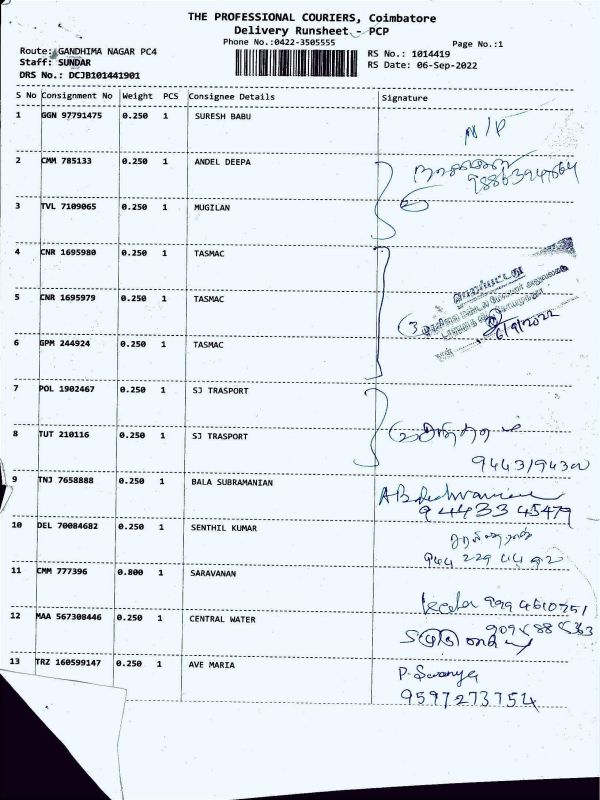 THE PROFESSIONAL COURIERS, Coimbatore
Delivery Runsheet - PCP
Phone No.:0422-3505555
Page No.:1
Route: GANDHIMA NAGAR PC4
RS No.: 1014419
Staff: SUNDAR
RS Date: 06-Sep-2022
DRS No.: DCJB101441901
S No Consignment No Weight PCS Consignee Details Signature
1 GGN 97791475 0.250 1 SURESH BABU N/P
2 CMM 785133 0.250 1 ANDEL DEEPA
3 TVL 7109065 0.250 1 MUGILAN
4 CNR 1695980 0.250 1 TASMAC
5 CNR 1695979 0.250 1 TASMAC
6/9/2022
6 GPM 244924 0.250 1 TASMAC
7 POL 1902467 0.250 1 SJ TRASPORT
8 TUT 210116 0.250 1 SJ TRASPORT
9 TNJ 7658888 0.250 1 BALA SUBRAMANIAN
9443345479
10 DEL 70084682 0.250 1 SENTHIL KUMAR
11 CMM 777396 0.800 1 SARAVANAN
12 MAA 567308446 0.250 1 CENTRAL WATER
13 TRZ 160599147 0.250 1 AVE MARIA P. Swanya
9597273754